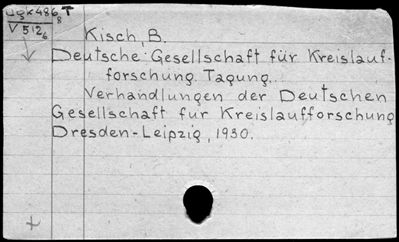 Ugk486 T
8
V 5126
Kisch, B.
Deutsche Gesellschaft für Kreislauf-
forschung. Tagung.
Verhandlungen der Deutschen
Gesellschaft für Kreislaufforschung
Dresden-Leipzig, 1930.